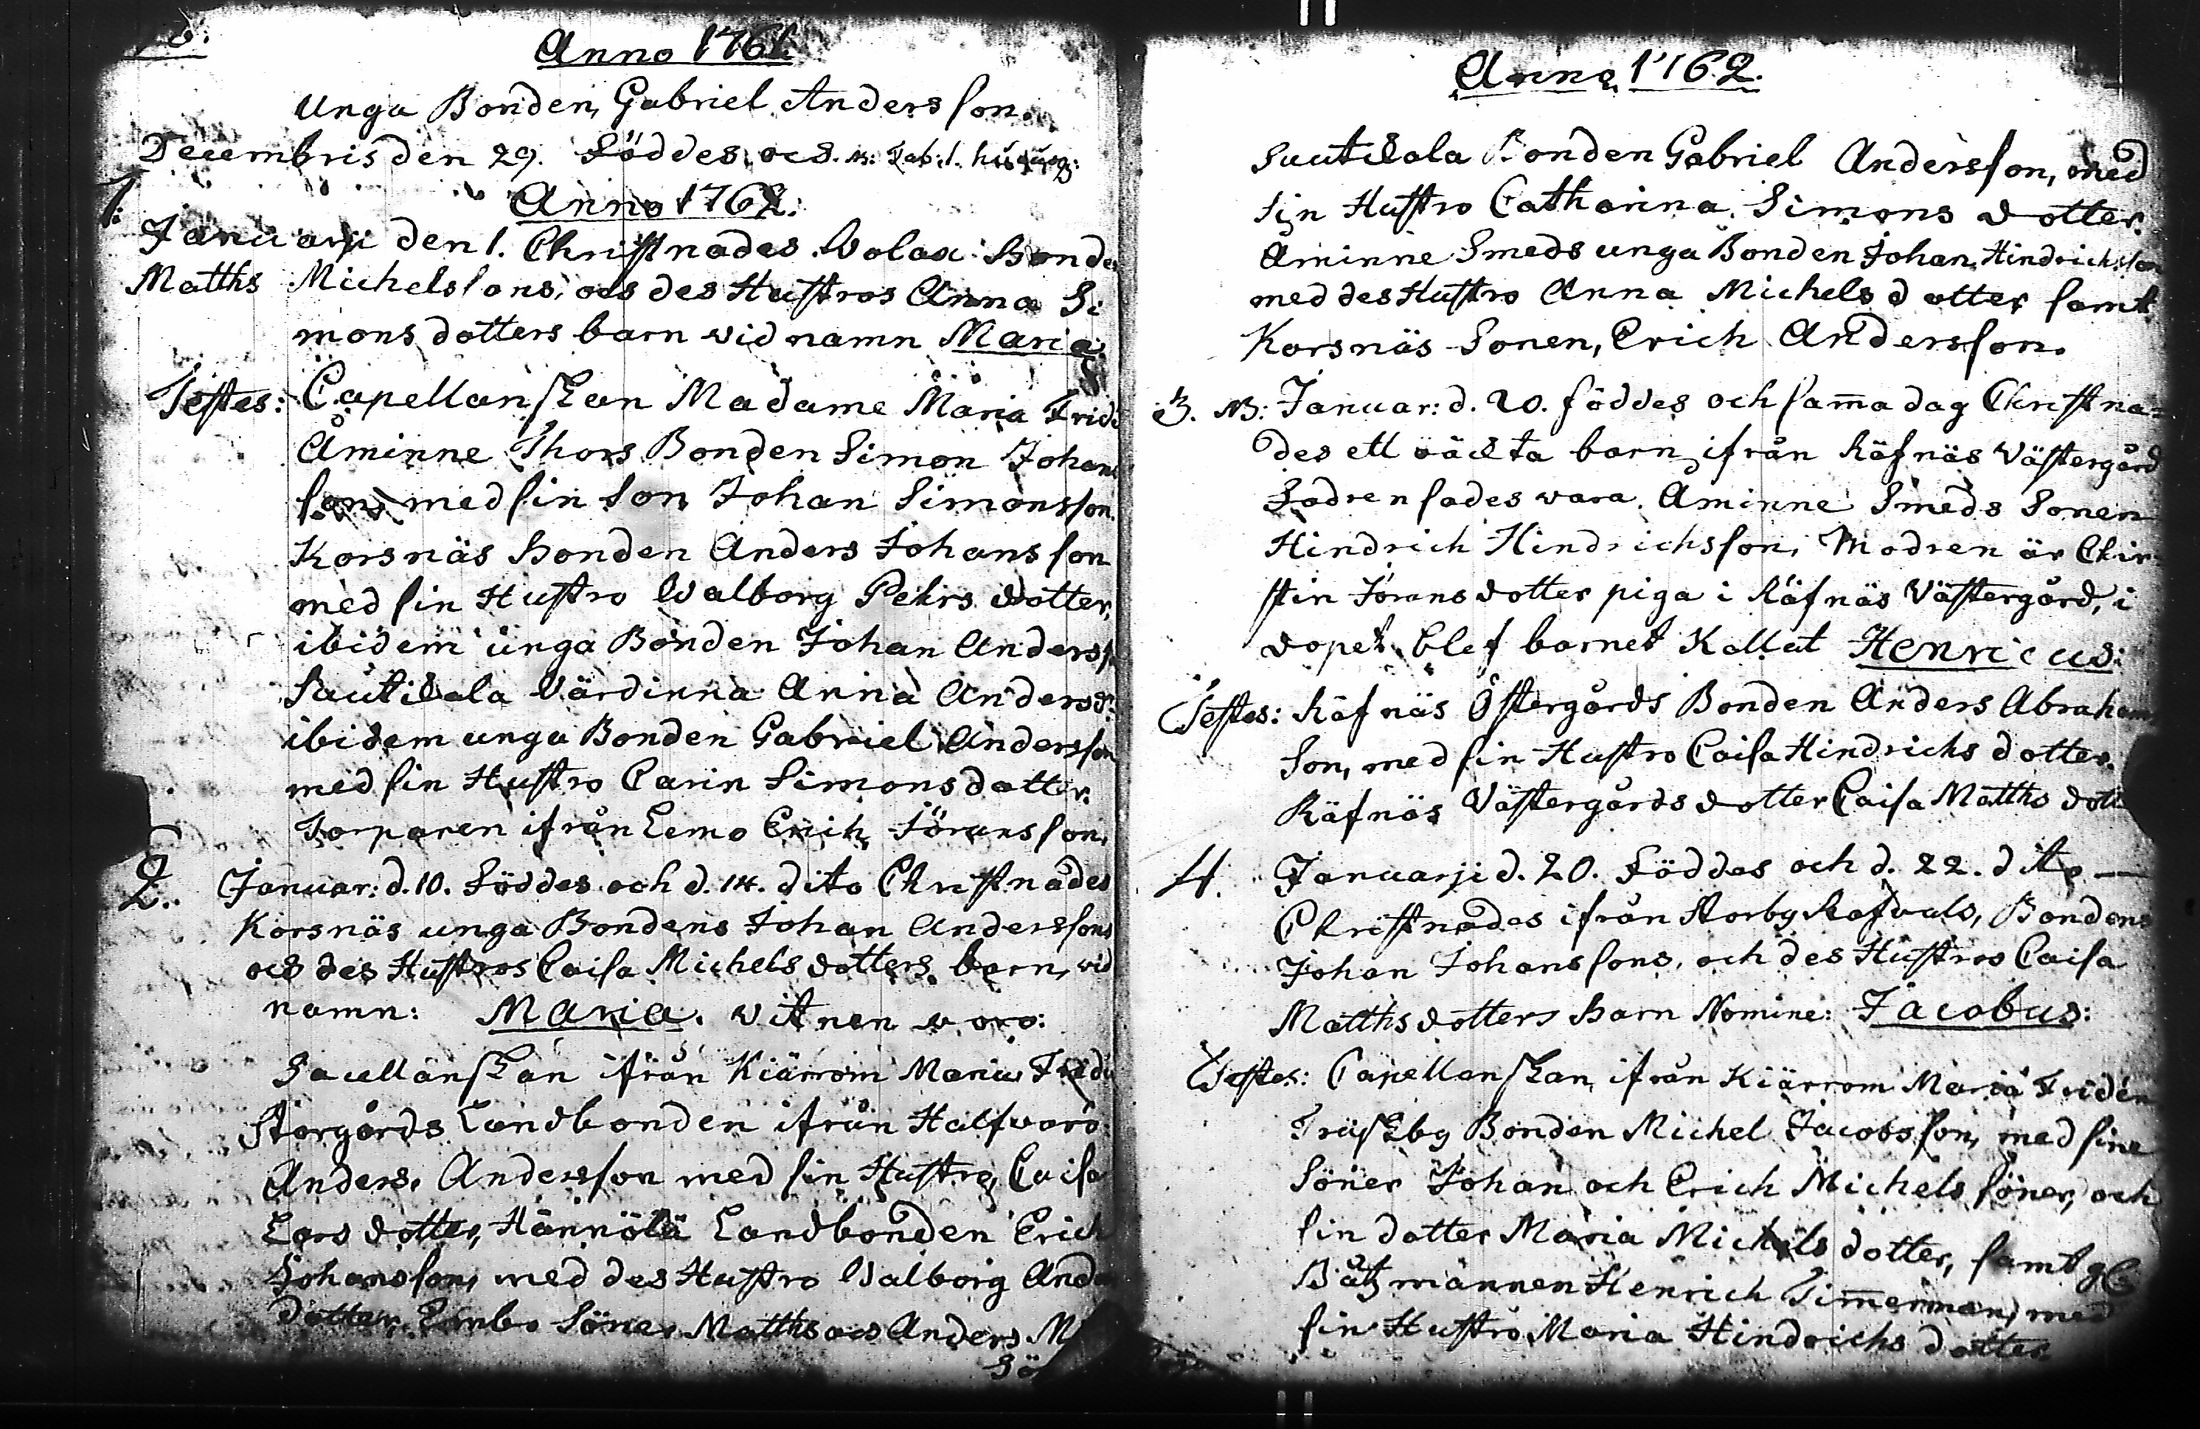 Anno 1761.
Unga Bonden, Gabriel Andersson.
Decembris den 29. Föddes, ocs.
Anno 1762.
1:
Januarji den 1. Christnades Wolax Bonde
Matths Michelssons, ocs des Hustros Anna Si
mons dotters barn vid namn Maria.
Testes: Capellanskan Madame Maria Frid
Åminne Thors Bonden Simon Johans
son, med sin son Johan Simonsson.
Korsnäs bonden Anders Johansson
med sin Hustro Walborg Pehrs dotter,
ibidem unga Bonden Johan Anderss
Sautikala Värdinna Anna Andersd:
ibidem unga Bonden Gabriel Andersson
med sin Hustro Carin Simons dotter.
Torparen ifrån Lemo Erich Göransson.
2. Januar: d. 10. Föddes och d. 14. dito Christnades
Korsnäs unga Bondens Johan Anderssons
ocs des Hustros Caisa Michels dotters barn, vid
namn: Maria. vitnen voro:
Capellanskan ifrån Kiärrom Maria Frid
Storgårds Landbonden ifrån Halfvarö
Anders Andersson med sin Hustro, Caisa
Lars dotter, Hännölä Landbonden Erich
Johansson, med des Hustro Walborg And
dotter, Embo Söner Matths ocs Anders M
Sö
Anno 1762.
6
Sautikala Bonden Gabriel Andersson, med
sin Hustro Catharina Simons dotter.
Åminne Smeds unga Bonden Johan Hindrichsson
med des Hustro Anna Michels dotter samt
Korsnäs Sonen, Erich Andersson.
3. NB: Januar: d. 20. föddes och samma dag Christna=
des ett oäckta barn, ifrån Räfnäs Västergård
Fadren sades vara Åminne Smeds Sonen
Hindrich Hindrichsson, Modren är Chir-
stin Jörans dotter piga i Räfnäs Västergård, i
dopet blef barnet Kallat Henricus:
Testes: Räfnäs Östergårds Bonden Anders Abraham
son, med sin Hustro Caisa Hindrichs dotter.
Räfnäs Västergårds dotter Caisa Matths dott
4. Januarji d. 20. Föddes och d. 22. dito —
Christnades ifrån Storby Rafvals, Bondens
Johan Johanssons, och des Hustros Caisa
Matths dotters Barn Nomine: Jacobus:
Testes: Capellanskan, ifrån Kiärrom Maria Fridén
Träskby Bonden Michel Jacobsson, med sine
Söner Johan och Erich Michels söner, och
sin dotter Maria Michels dotter, samt
Båtzmannen Henrich Timerman, med
sin Hustro Maria Hindrichs dotter